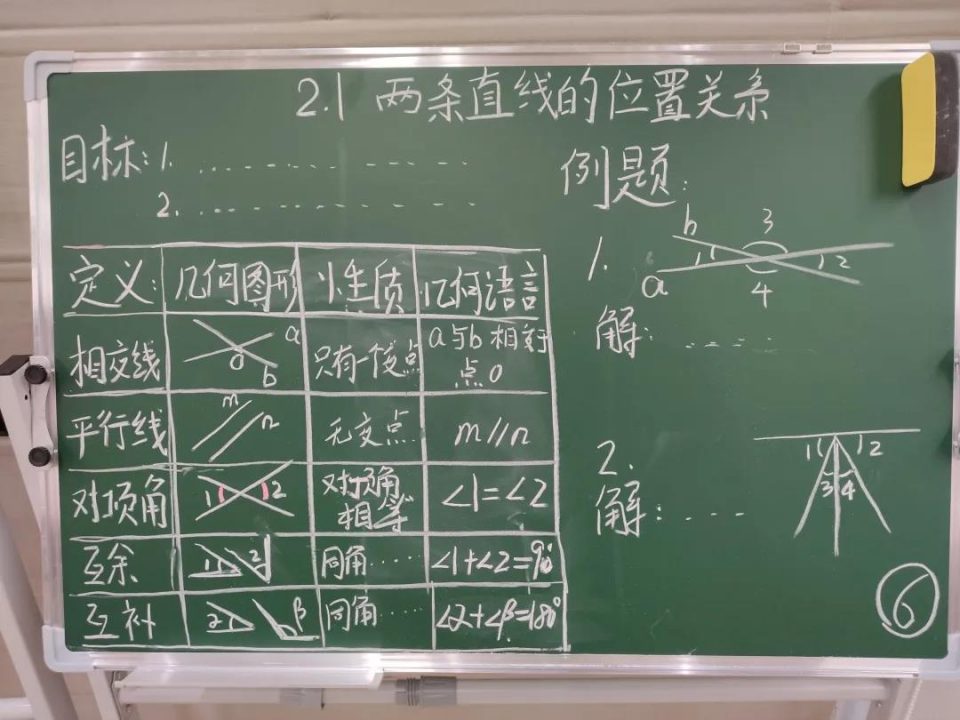 2.1 两条直线的位置关系
目标: 1. ..............
2. ..............
定义: 几何图形 性质 几何语言
相交线 a O b 只有一个交点 a与b相交于点O
平行线 m n 无交点 m//n
对顶角 1 2 对顶角相等 ∠1=∠2
互余 1 2 同角…… ∠1+∠2=90°
互补 α β 同角…… ∠α+∠β=180°
例题:
1. b a 1 3 2 4
解: ....
2. 1 2 3 4
解: ....
6